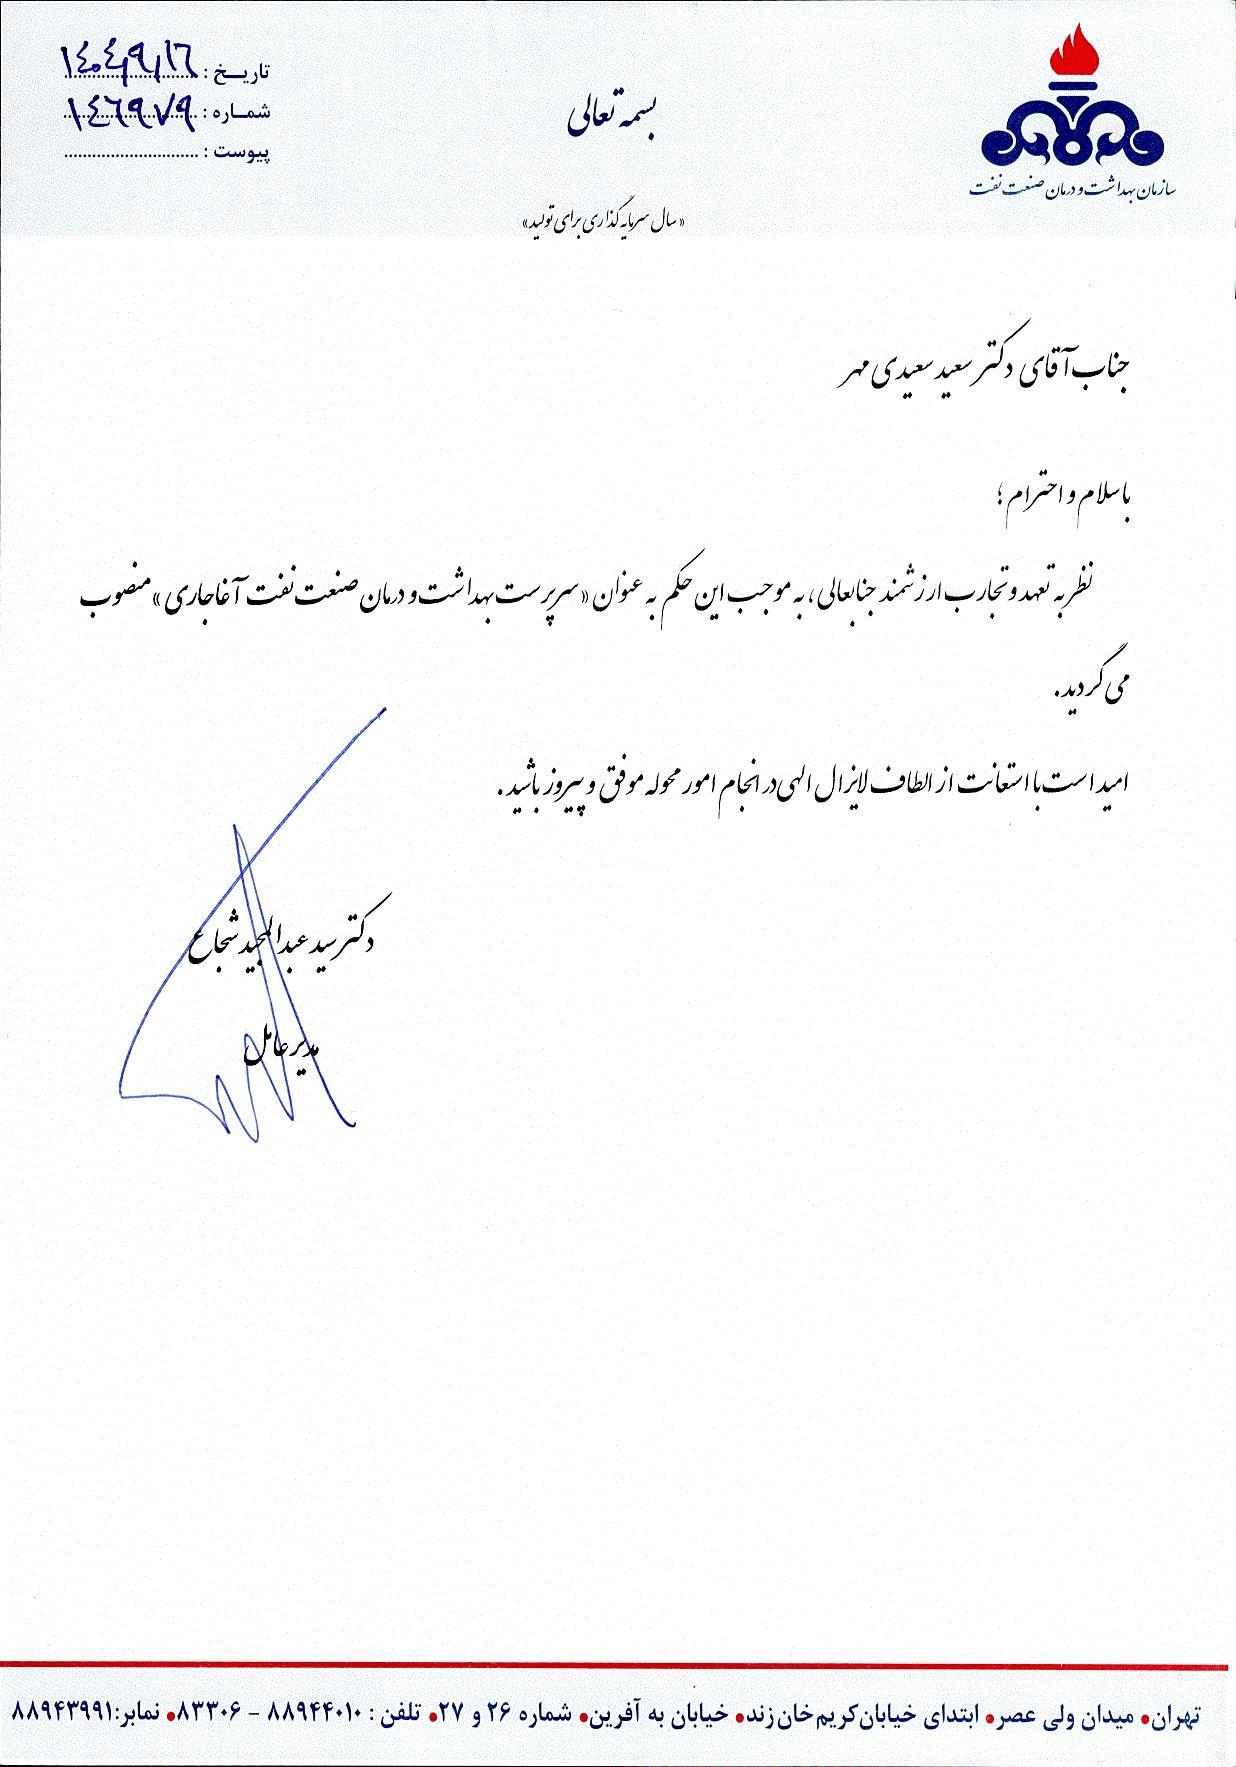 سازمان بهداشت و درمان صنعت نفت
بسمه تعالی
«سال سرمایه‌گذاری برای تولید»
تاریخ : ۱۴۰۴/۹/۱۶
شماره : ۱۴۶۹۷۹
پیوست :
جناب آقای دکتر سعید سعیدی مهر
با سلام و احترام ؛
نظر به تعهد و تجارب ارزشمند جنابعالی ، به موجب این حکم به عنوان «سرپرست بهداشت و درمان صنعت نفت آغاجاری» منصوب
می گردید.
امید است با استعانت از الطاف لایزال الهی در انجام امور محوله موفق و پیروز باشید .
دکتر سید عبدالمجید شجاع
مدیرعامل
تهران• میدان ولی عصر• ابتدای خیابان کریم خان زند• خیابان به آفرین• شماره ۲۶ و ۲۷• تلفن : ۸۸۹۴۴۰۱۰ - ۸۳۳۰۶• نمابر:۸۸۹۴۳۹۹۱